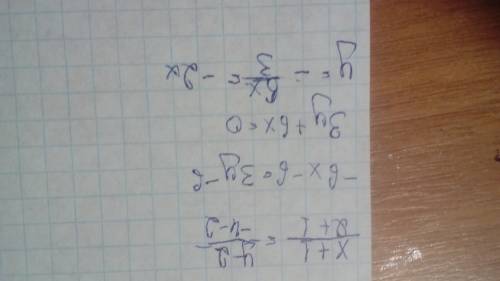 \frac{x+1}{2+1} = \frac{y-2}{-4-2}
-6x-6=3y-6
3y+6x=0
y = -\frac{6x}{3} = -2x